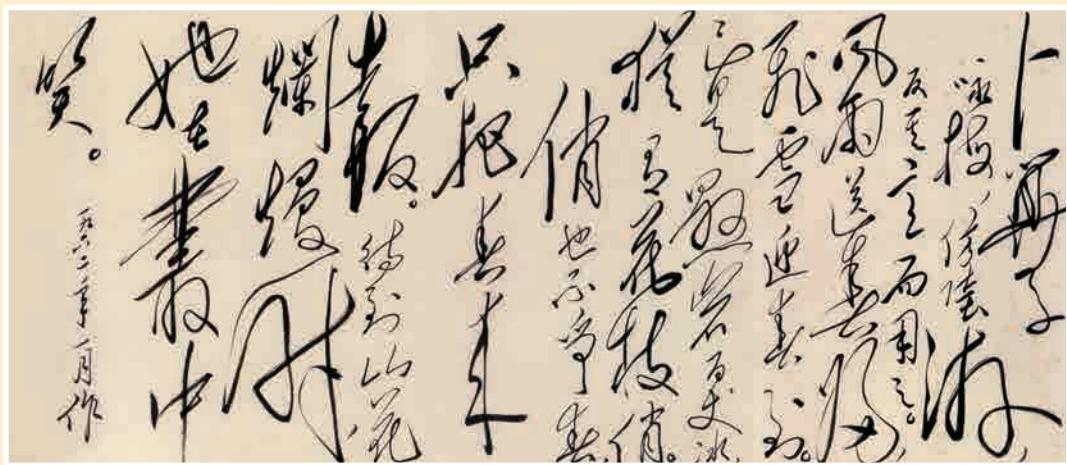 卜算子
咏梅，仿陸游
反其意而用之。
风雨送春归，
飞雪迎春到。
已是懸岩百丈冰，
犹有花枝俏。
俏也不争春，
只把春来
報。待到山花
爛熳时
她在叢中
笑。一九六 年 月作